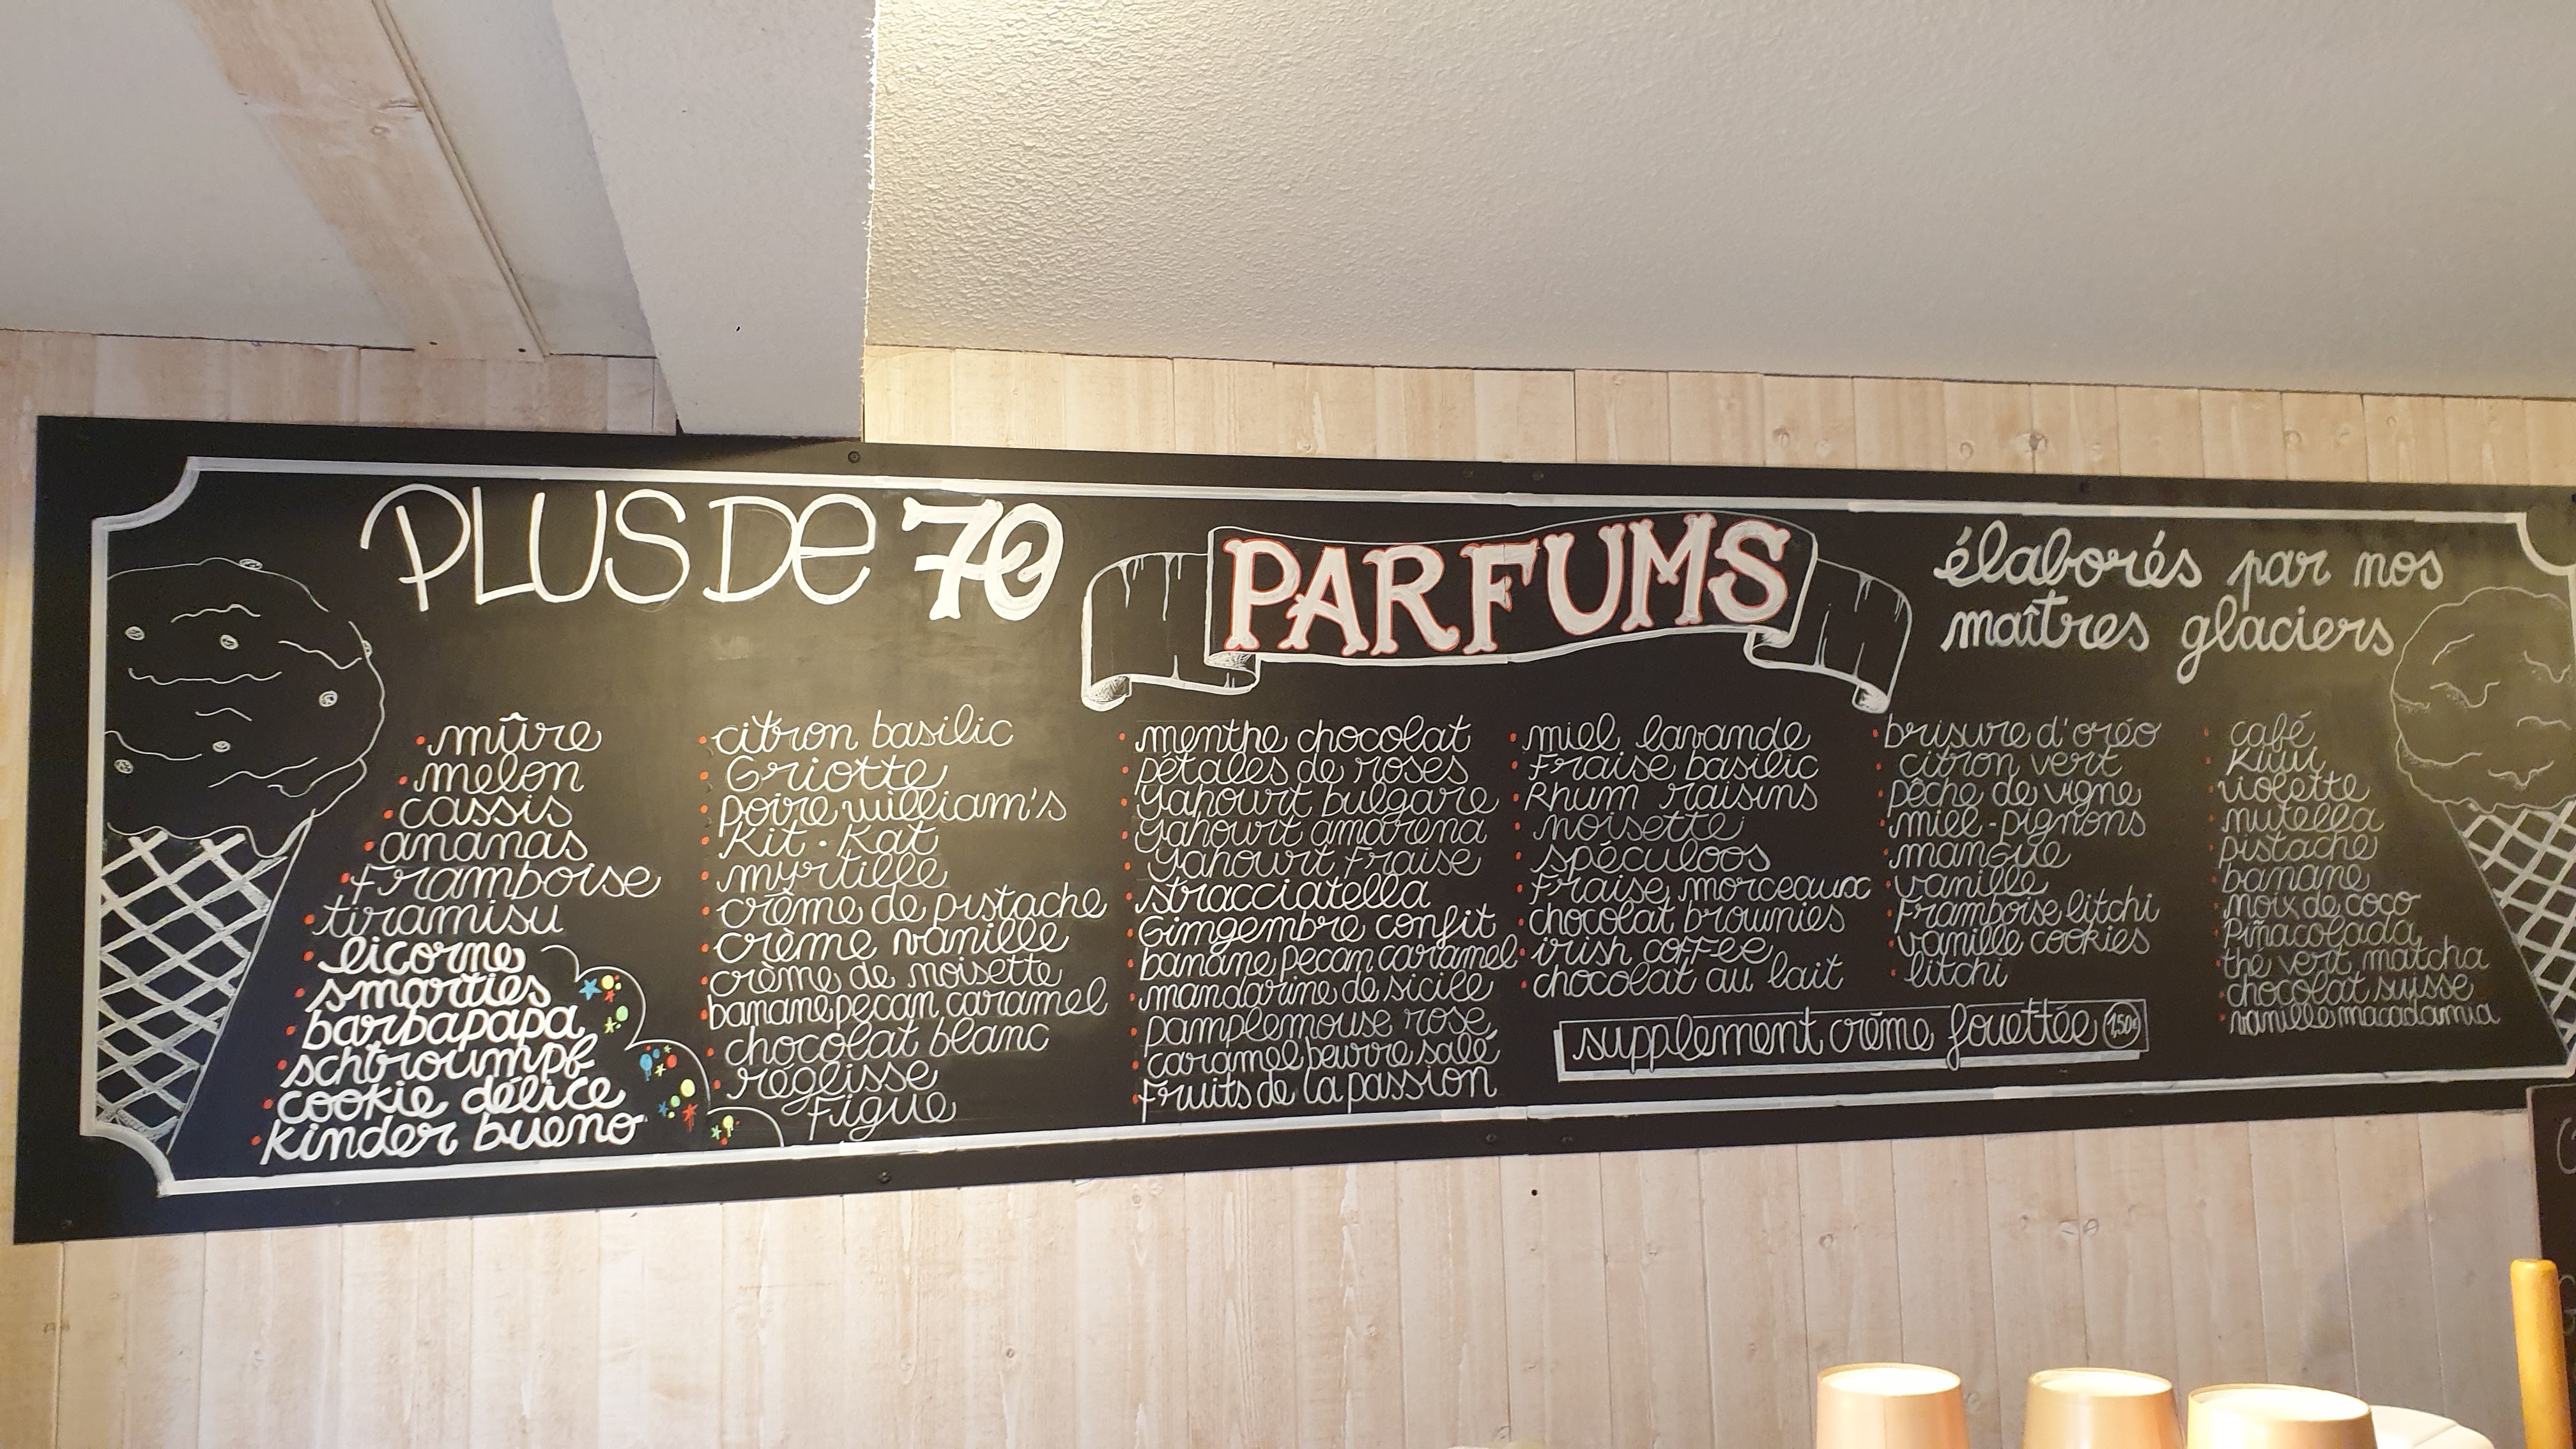 PLUS DE 70
PARFUMS
élaborés par nos
maîtres glaciers
mûre
melon
cassis
ananas
framboise
tiramisu
licorne
smarties
barbapapa
schtroumpf
cookie délice
kinder bueno
citron basilic
Griotte
poire william's
Kit-Kat
myrtille
crème de pistache
crème vanille
crème de noisette
banane pecan caramel
chocolat blanc
réglisse
Figue
menthe chocolat
pétales de roses
Yahourt bulgare
Yahourt amarena
Yahourt Fraise
stracciatella
Gimgembre confit
banane pecan caramel
mandarine de sicile
pamplemouse rose
caramel beurre salé
Fruits de la passion
miel lavande
Fraise basilic
Rhum raisins
noisette
spéculoos
Fraise morceaux
chocolat brownies
irish coffee
chocolat au lait
brisure d'oréo
citron vert
pêche de vigne
miel-pignons
mangue
vanille
Framboise litchi
vanille cookies
litchi
supplement crème fouettée 1,50€
café
Kiwi
violette
nutella
pistache
banane
noix de coco
Piñacolada
thé vert matcha
chocolat suisse
vanille macadamia